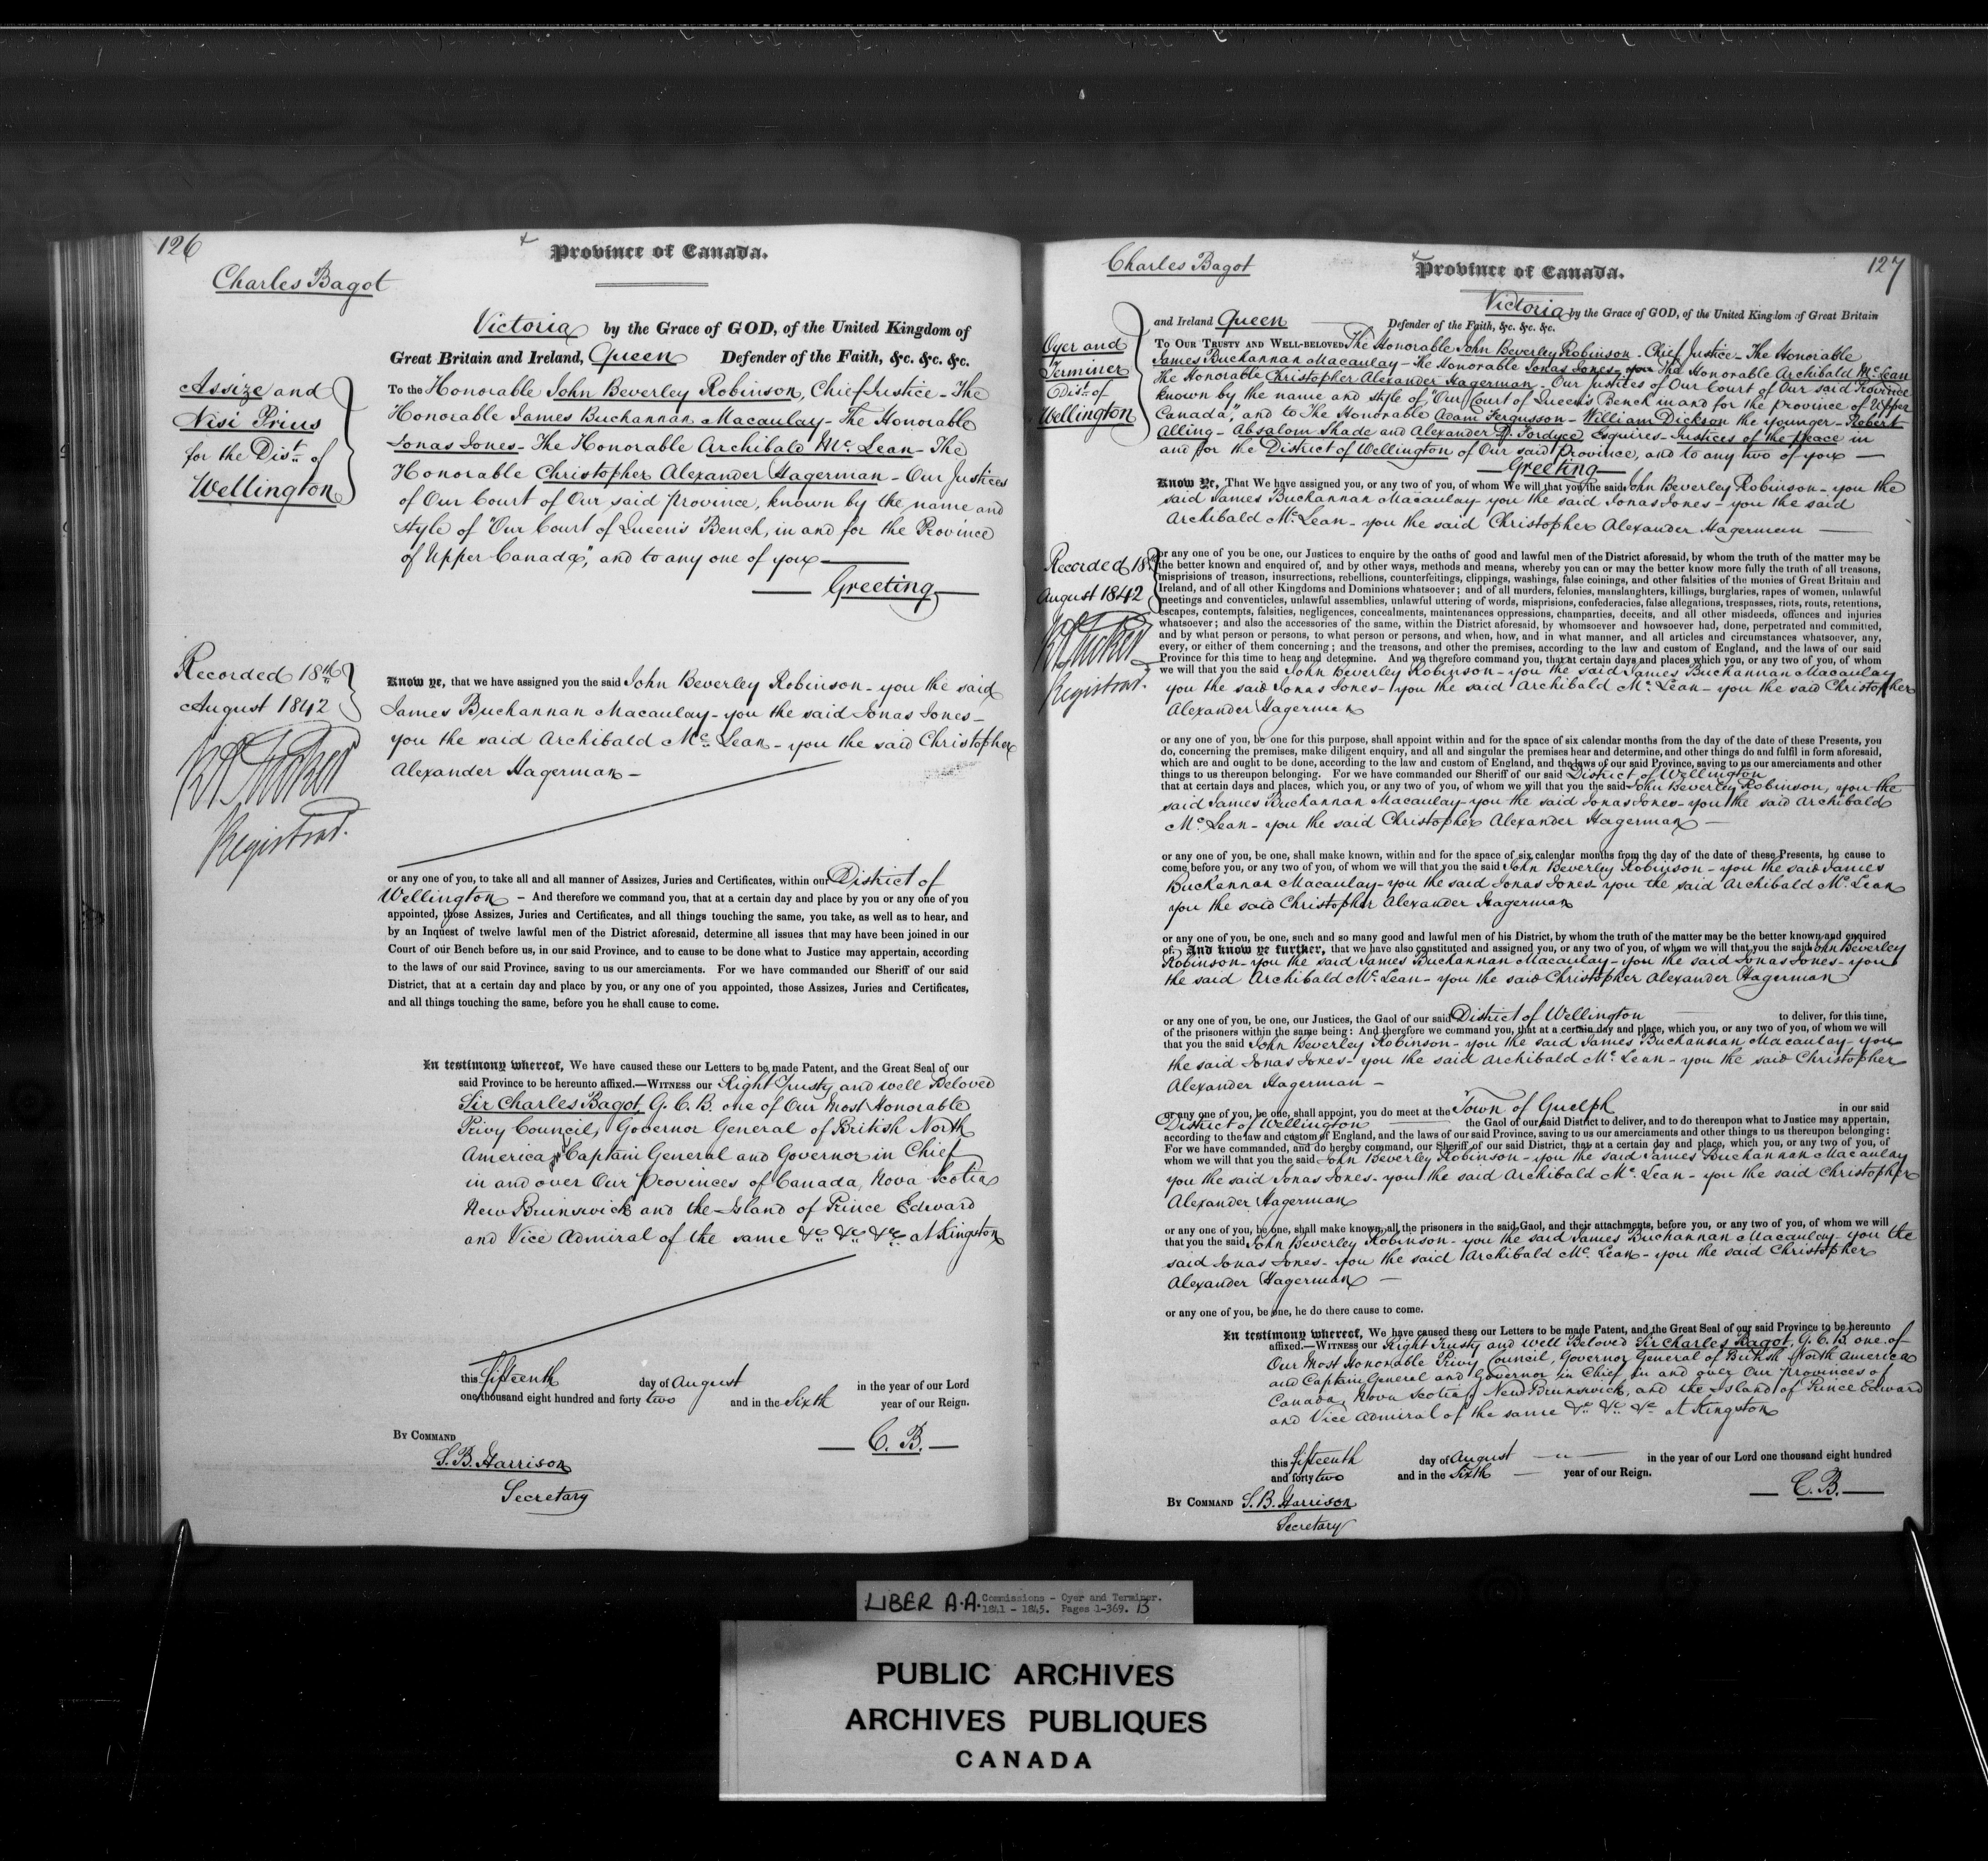 126
Province of Canada.
Charles Bagot
Victoria by the Grace of GOD, of the United Kingdom of
Great Britain and Ireland, Queen Defender of the Faith, &c. &c. &c.
Assize and
Nisi Prius
for the Dist. of
Wellington
To the Honorable John Beverley Robinson, Chief Justice - The
Honorable James Buchannan Macaulay - The Honorable
Jonas Jones - The Honorable Archibald Mc. Lean - The
Honorable Christopher Alexander Hagerman - Our Justices
of Our Court of Our said province, known by the name and
style of "Our Court of Queen's Bench, in and for the Province
of Upper Canada," and to any one of you
Greeting
Recorded 18th
August 1842
Registrar.
Know ye, that we have assigned you the said John Beverley Robinson - you the said
James Buchannan Macaulay - you the said Jonas Jones -
you the said Archibald Mc. Lean - you the said Christopher
Alexander Hagerman -
or any one of you, to take all and all manner of Assizes, Juries and Certificates, within our District of
Wellington - And therefore we command you, that at a certain day and place by you or any one of you
appointed, those Assizes, Juries and Certificates, and all things touching the same, you take, as well as to hear, and
by an Inquest of twelve lawful men of the District aforesaid, determine all issues that may have been joined in our
Court of our Bench before us, in our said Province, and to cause to be done what to Justice may appertain, according
to the laws of our said Province, saving to us our amerciaments. For we have commanded our Sheriff of our said
District, that at a certain day and place by you, or any one of you appointed, those Assizes, Juries and Certificates,
and all things touching the same, before you he shall cause to come.
In testimony whereof, We have caused these our Letters to be made Patent, and the Great Seal of our
said Province to be hereunto affixed.—WITNESS our Right Trusty and well Beloved
Sir Charles Bagot, G. C. B. one of Our Most Honorable
Privy Council, Governor General of British North
America, Captain General and Governor in Chief
in and over Our provinces of Canada, Nova Scotia
New Brunswick and the Island of Prince Edward
and Vice Admiral of the same &c &c &c at Kingston
this fifteenth day of August in the year of our Lord
one thousand eight hundred and forty two and in the Sixth year of our Reign.
BY COMMAND
S. B. Harrison
Secretary
C. B.
127
Province of Canada.
Charles Bagot
Victoria by the Grace of GOD, of the United Kingdom of Great Britain
and Ireland Queen Defender of the Faith, &c. &c. &c.
Oyer and
Terminer
Dist. of
Wellington
TO OUR TRUSTY AND WELL-BELOVED The Honorable John Beverley Robinson - Chief Justice - The Honorable
James Buchannan Macaulay - The Honorable Jonas Jones - The Honorable Archibald Mc. Lean
The Honorable Christopher Alexander Hagerman - Our Justices of Our Court of Our said Province
known by the name and style of "Our Court of Queen's Bench in and for the province of Upper
Canada," and to The Honorable Adam Fergusson - William Dickson the younger - Robert
Alling - Absalom Shade and Alexander D. Fordyce, Esquires - Justices of the peace in
and for the District of Wellington of Our said province, and to any two of you -
Greeting
Know Ye, That We have assigned you, or any two of you, of whom We will that you the said John Beverley Robinson - you the
said James Buchannan Macaulay - you the said Jonas Jones - you the said
Archibald Mc. Lean - you the said Christopher Alexander Hagerman
Recorded 18th
August 1842
Registrar.
or any one of you be one, our Justices to enquire by the oaths of good and lawful men of the District aforesaid, by whom the truth of the matter may be
the better known and enquired of, and by other ways, methods and means, whereby you can or may the better know more fully the truth of all treasons,
misprisions of treason, insurrections, rebellions, counterfeitings, clippings, washings, false coinings, and other falsities of the monies of Great Britain and
Ireland, and of all other Kingdoms and Dominions whatsoever; and of all murders, felonies, manslaughters, killings, burglaries, rapes of women, unlawful
meetings and conventicles, unlawful assemblies, unlawful uttering of words, misprisions, confederacies, false allegations, trespasses, riots, routs, retentions,
escapes, contempts, falsities, negligences, concealments, maintenances oppressions, champarties, deceits, and all other misdeeds, offences and injuries
whatsoever; and also the accessories of the same, within the District aforesaid, by whomsoever and howsoever had, done, perpetrated and committed,
and by what person or persons, to what person or persons, and when, how, and in what manner, and all articles and circumstances whatsoever, any,
every, or either of them concerning; and the treasons, and other the premises, according to the law and custom of England, and the laws of our said
Province for this time to hear and determine. And we therefore command you, that at certain days and places which you, or any two of you, of whom
we will that you the said John Beverley Robinson - you the said James Buchannan Macaulay
you the said Jonas Jones - you the said Archibald Mc. Lean - you the said Christopher
Alexander Hagerman
or any one of you, be one for this purpose, shall appoint within and for the space of six calendar months from the day of the date of these Presents, you
do, concerning the premises, make diligent enquiry, and all and singular the premises hear and determine, and other things do and fulfil in form aforesaid,
which are and ought to be done, according to the law and custom of England, and the laws of our said Province, saving to us our amerciaments and other
things to us thereupon belonging. For we have commanded our Sheriff of our said District of Wellington
that at certain days and places, which you, or any two of you, of whom we will that you the said John Beverley Robinson, you the
said James Buchannan Macaulay - you the said Jonas Jones - you the said Archibald
Mc. Lean - you the said Christopher Alexander Hagerman -
or any one of you, be one, shall make known, within and for the space of six calendar months from the day of the date of these Presents, he cause to
come before you, or any two of you, of whom we will that you the said John Beverley Robinson - you the said James
Buckennan Macaulay - you the said Jonas Jones - you the said Archibald Mc. Lean
you the said Christopher Alexander Hagerman
or any one of you, be one, such and so many good and lawful men of his District, by whom the truth of the matter may be the better known and enquired
of. And know ye further, that we have also constituted and assigned you, or any two of you, of whom we will that you the said John Beverley
Robinson - you the said James Buchannan Macaulay - you the said Jonas Jones - you
the said Archibald Mc. Lean - you the said Christopher Alexander Hagerman
or any one of you, be one, our Justices, the Gaol of our said District of Wellington to deliver, for this time,
of the prisoners within the same being: And therefore we command you, that at a certain day and place, which you, or any two of you, of whom we will
that you the said John Beverley Robinson - you the said James Buchannan Macaulay - you
the said Jonas Jones - you the said Archibald Mc. Lean - you the said Christopher
Alexander Hagerman -
or any one of you, be one, shall appoint, you do meet at the Town of Guelph in our said
District of Wellington the Gaol of our said District to deliver, and to do thereupon what to Justice may appertain,
according to the law and custom of England, and the laws of our said Province, saving to us our amerciaments and other things to us thereupon belonging:
For we have commanded, and do hereby command, our Sheriff of our said District, that at a certain day and place, which you, or any two of you, of
whom we will that you the said John Beverley Robinson - you the said James Buchannan Macaulay
you the said Jonas Jones - you the said Archibald Mc. Lean - you the said Christopher
Alexander Hagerman
or any one of you, be one, shall make known, all the prisoners in the said Gaol, and their attachments, before you, or any two of you, of whom we will
that you the said John Beverley Robinson - you the said James Buchannan Macaulay - you the
said Jonas Jones - you the said Archibald Mc. Lean - you the said Christopher
Alexander Hagerman -
or any one of you, be one, he do there cause to come.
In testimony whereof, We have caused these our Letters to be made Patent, and the Great Seal of our said Province to be hereunto
affixed.—WITNESS our Right Trusty and well Beloved Sir Charles Bagot, G. C. B. one of
Our Most Honorable Privy Council, Governor General of British North America
and Captain General and Governor in Chief in and over Our provinces of
Canada, Nova Scotia, New Brunswick, and the Island of Prince Edward
and Vice Admiral of the same &c &c &c at Kingston
this fifteenth day of August in the year of our Lord one thousand eight hundred
and forty two and in the Sixth year of our Reign.
BY COMMAND S. B. Harrison
Secretary
C. B.
LIBER A.A. Commissions - Oyer and Terminer.
1841 - 1845. Pages 1-369. B
PUBLIC ARCHIVES
ARCHIVES PUBLIQUES
CANADA